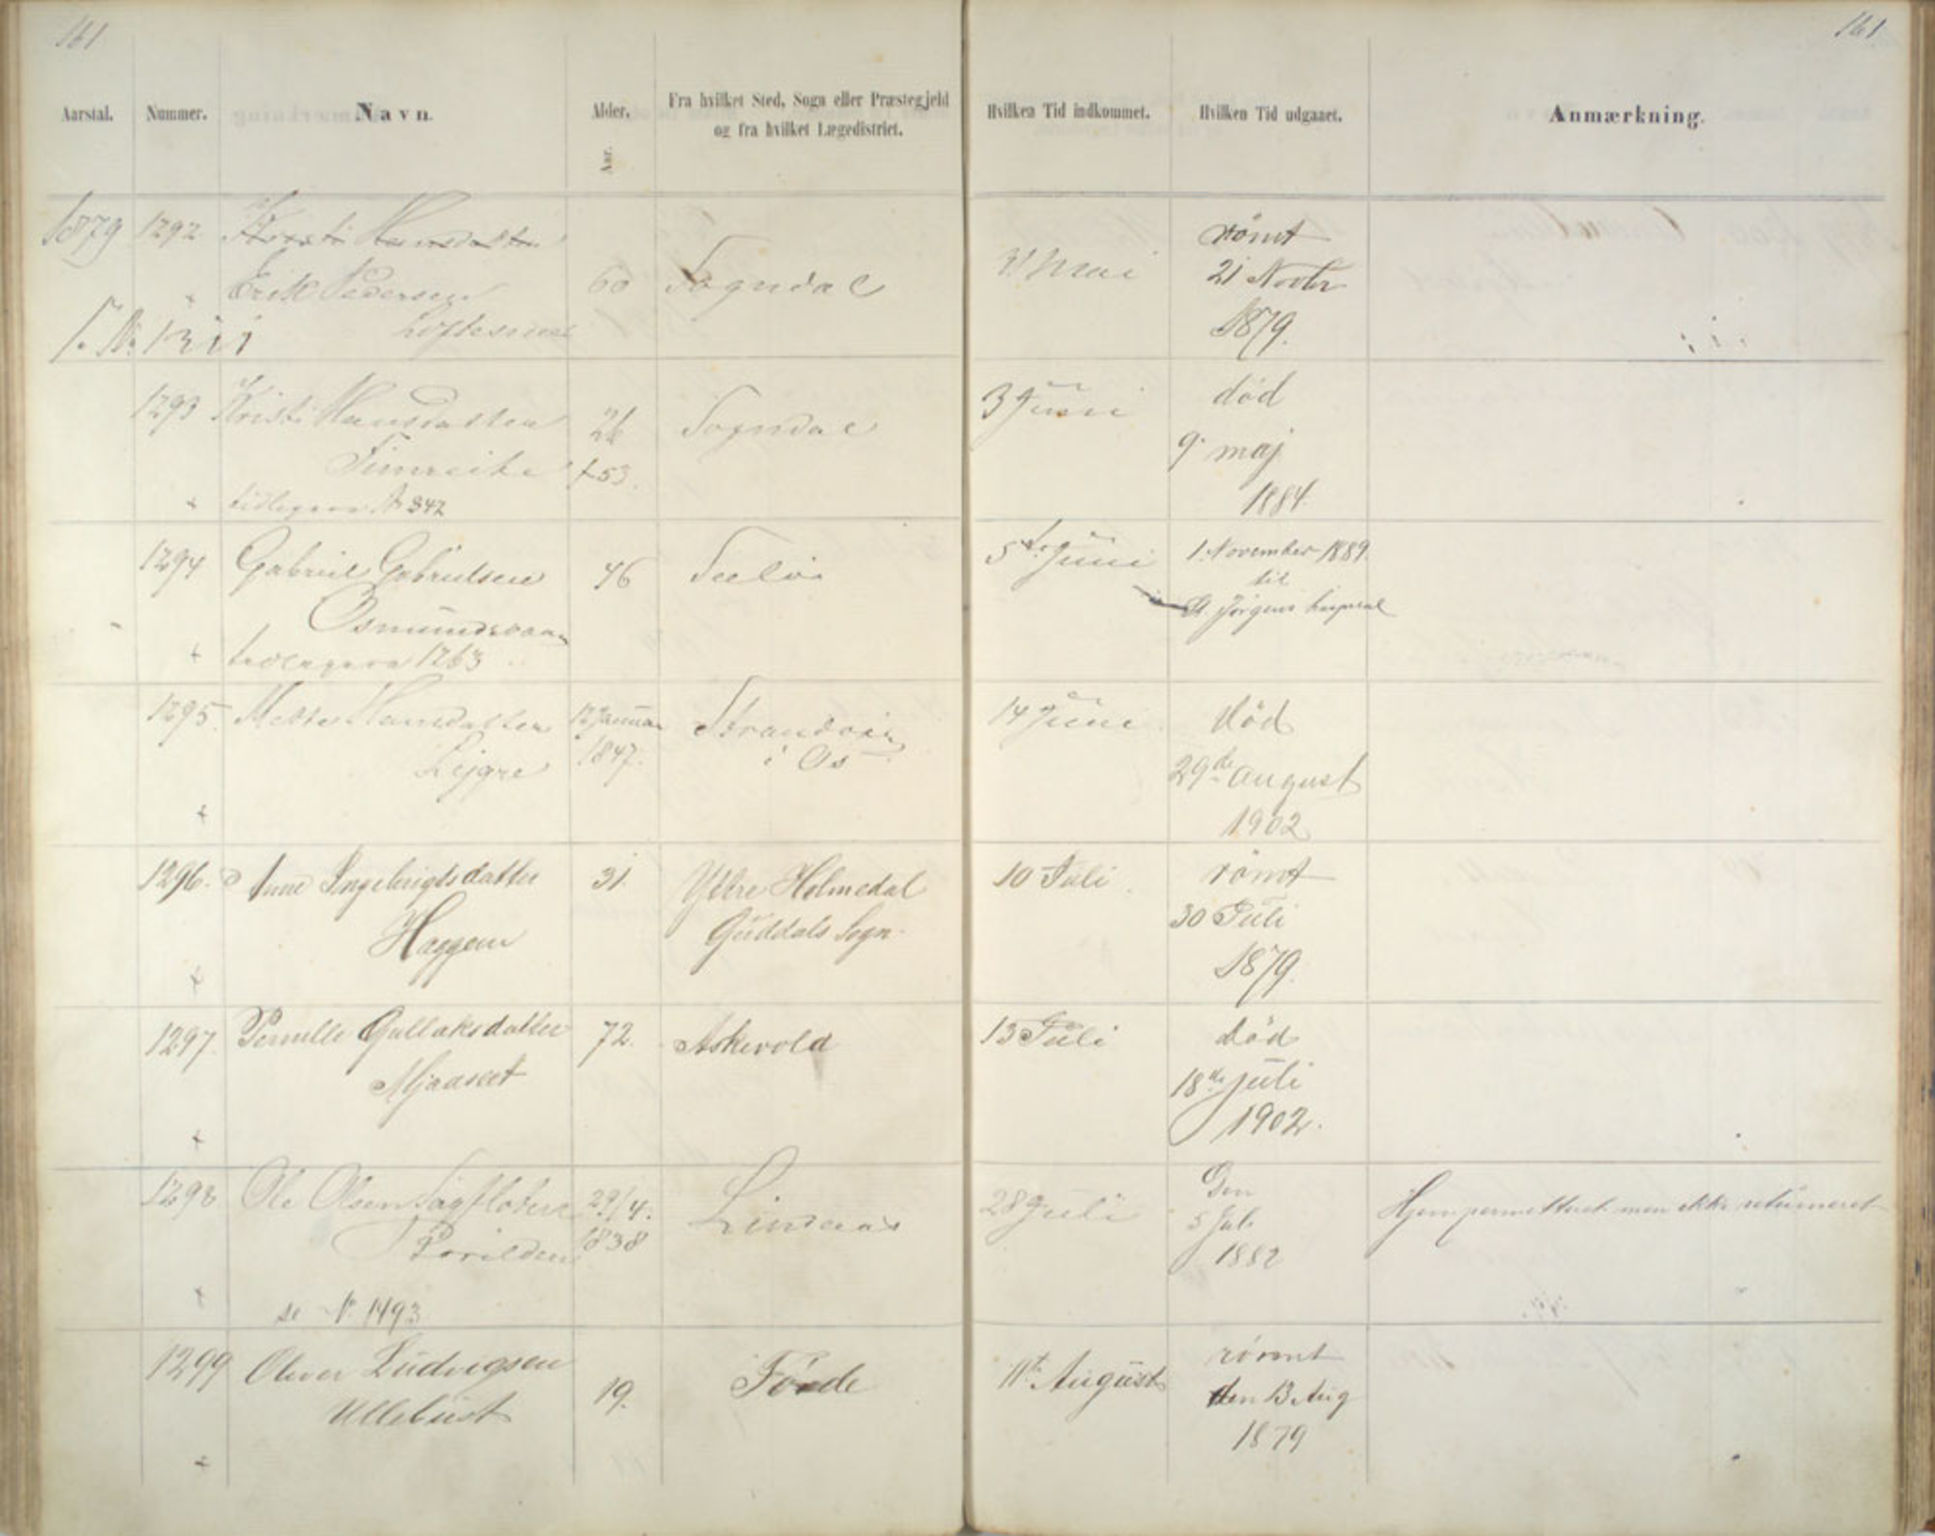 161
161
Aarstal.
Nummer.
Navn.
Alder.
Aar.
Fra hvilket Sted, Sogn eller Præstegjeld
og fra hvilket Lægedistrict.
Hvilken Tid indkommet.
Hvilken Tid udgaaet.
Anmærkning.
1879 1292 Kristi Hansdatter
Erik Pedersen 60 Sogndal 31 Mai
Loftesnæs
f. No 1311
römt
21 Novbr
1879.
1293 Kristi Hansdatter 26 Sogndal 3 Juni
Timreite +53.
tidligere No 342
död
9 maj
1884.
1294 Gabriel Gabrielsen 46 5te Juni
Osmundsvaag
tidligere 1263
1. November 1889
til
St. Jørgens hospital
1295. Mette Hansdatter 12 Januar Strandvig 14 Juni
Lejgre 1847. i Os
död
29de August
1902
1296. Anne Ingebrigtsdatter 31 Yttre Holmedal 10 Juli
Haggen Guddals Sogn
römt
30 Juli
1879.
1297. Pernille Gullaksdatter 72. Askevold 13 Juli
Mjaaset
död
18de juli
1902.
1298 Ole Olsen 29/4. Lindaas 28 Juli
1838
se No 1493
Den
5 Juli
1882
Hjempermitteret men ikke returneret
1299 Oliver Ludvigsen 19. Förde 11te August
Ullebust
römt
den 13 Aug
1879